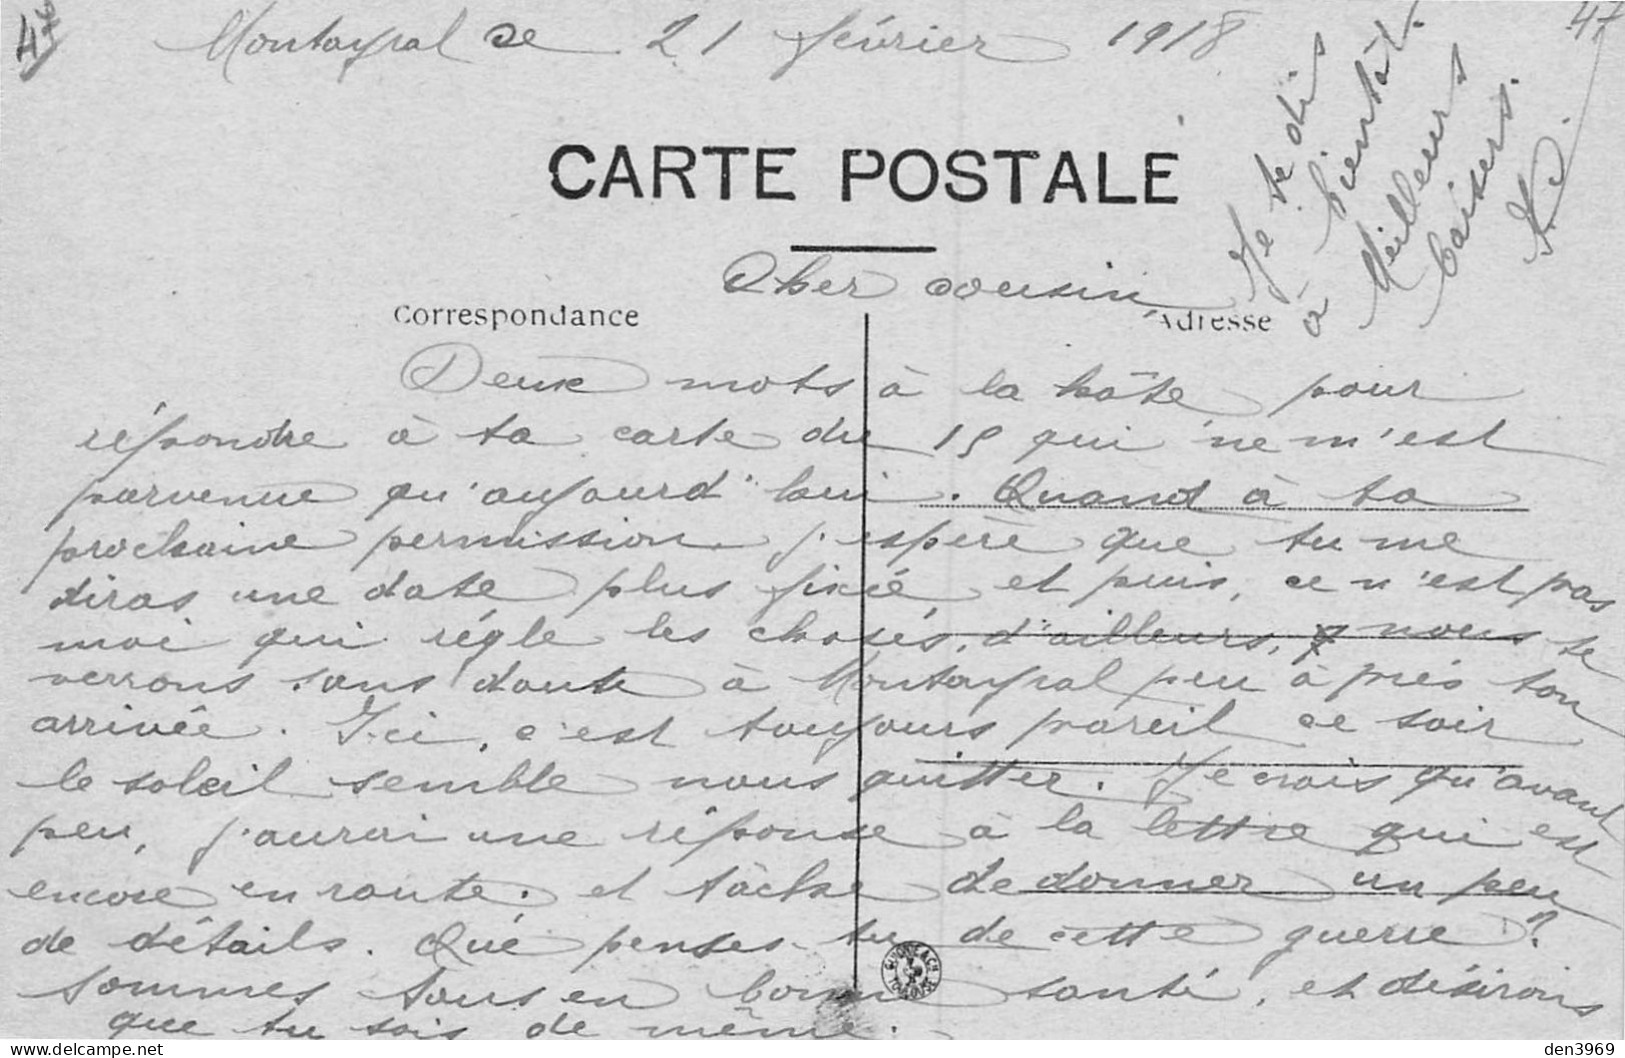 47
47
Montayral ce 21 février 1918
CARTE POSTALE
Cher cousin,
Correspondance
Adresse
Deux mots à la hâte pour
répondre à ta carte du 15 qui ne m'est
parvenue qu'aujourd'hui. Quant à ta
prochaine permission j'espère que tu me
diras une date plus fixée, et puis, ce n'est pas
moi qui règle les choses, d'ailleurs, nous te
verrons sans doute à Montayral peu après ton
arrivée. Ici, c'est toujours pareil ce soir
le soleil semble nous quitter. Je crois qu'avant
peu, j'aurai une réponse à la lettre qui est
encore en route. et tâche de donner un peu
de détails. Que penses-tu de cette guerre?
sommes tous en bonne santé, et désirons
que tu sois de même.
Je te dis
à bientôt.
Meilleurs
baisers.
den3969